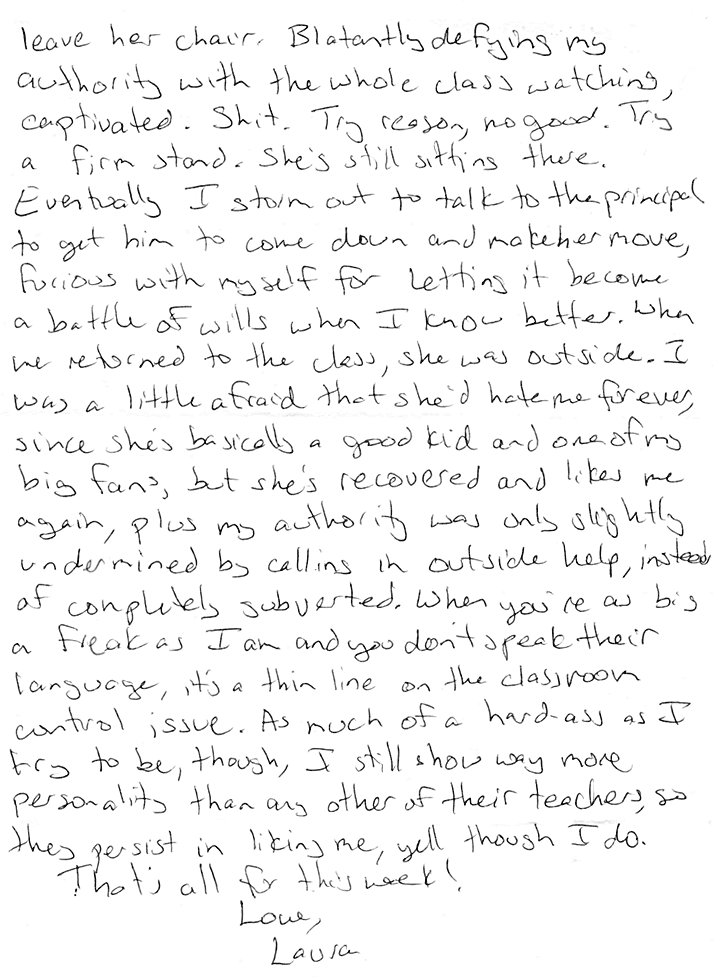 leave her chair. Blatantly defying my
authority with the whole class watching,
captivated. Shit. Try reason, no good. Try
a firm stand. She's still sitting there.
Eventually I storm out to talk to the principal
to get him to come down and make her move,
furious with myself for letting it become
a battle of wills when I know better. When
we returned to the class, she was outside. I
was a little afraid that she'd hate me forever,
since she's basically a good kid and one of my
big fans, but she's recovered and likes me
again, plus my authority was only slightly
undermined by calling in outside help, instead
of completely subverted. When you're as big
a freak as I am and you don't speak their
language, it's a thin line on the classroom
control issue. As much of a hard-ass as I
try to be, though, I still show way more
personality than any other of their teachers, so
they persist in liking me, yell though I do.
That's all for this week!
Love,
Laura